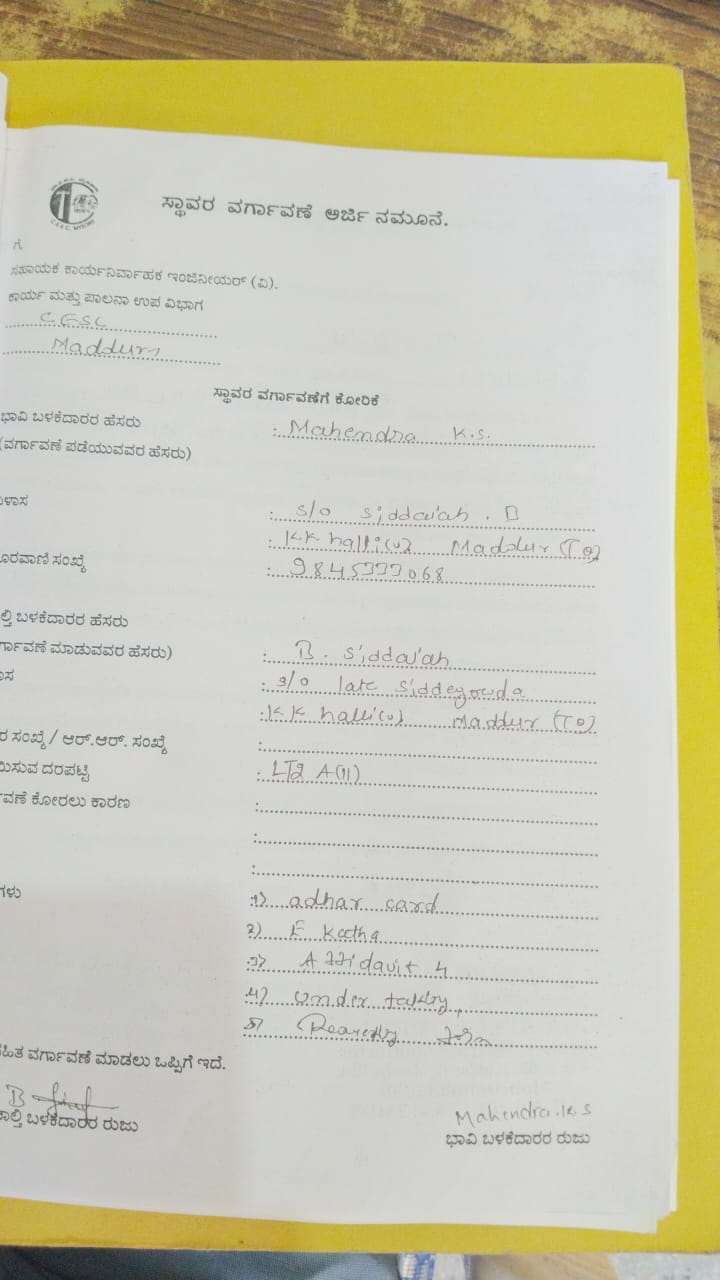 C.E.S.C. MYSORE
ಸ್ಥಾವರ ವರ್ಗಾವಣೆ ಅರ್ಜಿ ನಮೂನೆ.
ಗೆ,
ಸಹಾಯಕ ಕಾರ್ಯನಿರ್ವಾಹಕ ಇಂಜಿನೀಯರ್ (ವಿ).
ಕಾರ್ಯ ಮತ್ತು ಪಾಲನಾ ಉಪ ವಿಭಾಗ
CESC
Maddur
ಸ್ಥಾವರ ವರ್ಗಾವಣೆಗೆ ಕೋರಿಕೆ
ಭಾವಿ ಬಳಕೆದಾರರ ಹೆಸರು : Mahendra K.S.
(ವರ್ಗಾವಣೆ ಪಡೆಯುವವರ ಹೆಸರು)
ಳಾಸ : S/o Siddaiah . B
: K K halli (v) Maddur (TQ)
ೂರವಾಣಿ ಸಂಖ್ಯೆ : 9845333068
ಲ್ತಿ ಬಳಕೆದಾರರ ಹೆಸರು
ರ್ಗಾವಣೆ ಮಾಡುವವರ ಹೆಸರು) : B. Siddaiah
ಾಸ : S/o late Siddegowda
: K K halli (v) Maddur (TQ)
ರ ಸಂಖ್ಯೆ / ಆರ್.ಆರ್. ಸಂಖ್ಯೆ :
ಯಿಸುವ ದರಪಟ್ಟಿ : LT2 A(11)
ಾವಣೆ ಕೋರಲು ಕಾರಣ :
:
:
ಗಳು :1) adhar card
2) E Katha
:3) Affidavit 4
:4) under taking
:5)
ಹಿತ ವರ್ಗಾವಣೆ ಮಾಡಲು ಒಪ್ಪಿಗೆ ಇದೆ.
B
ಾಲ್ತಿ ಬಳಕೆದಾರರ ರುಜು
Mahendra.K.S
ಭಾವಿ ಬಳಕೆದಾರರ ರುಜು